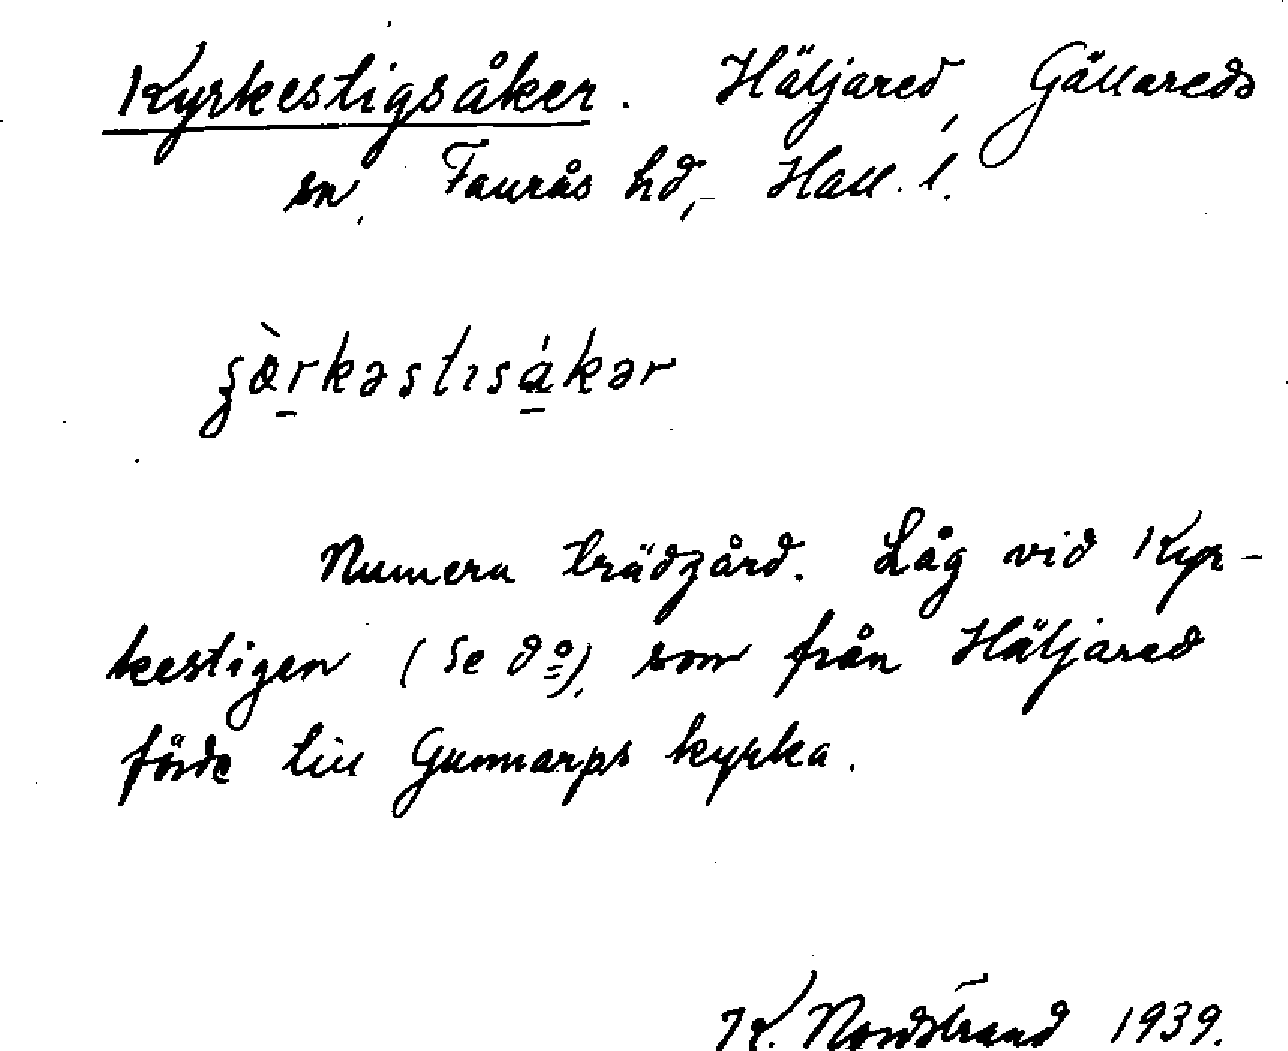 Kyrkestigsåker. Häljared, Gällareds
sn, Faurås hd, Hall. l.
Numera trädgård. Låg vid Kyr-
kestigen (se d:o), som från Häljared
förde till Gunnarps kyrka.
K. Nordstrand 1939.